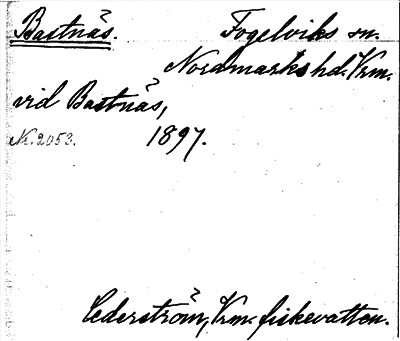 Bastnäs. Fogelviks sn.
Nordmarks hd. Vrm.
vid Bastnäs,
Nr. 2053. 1897.
Cederström, Vrm. fiskevatten.